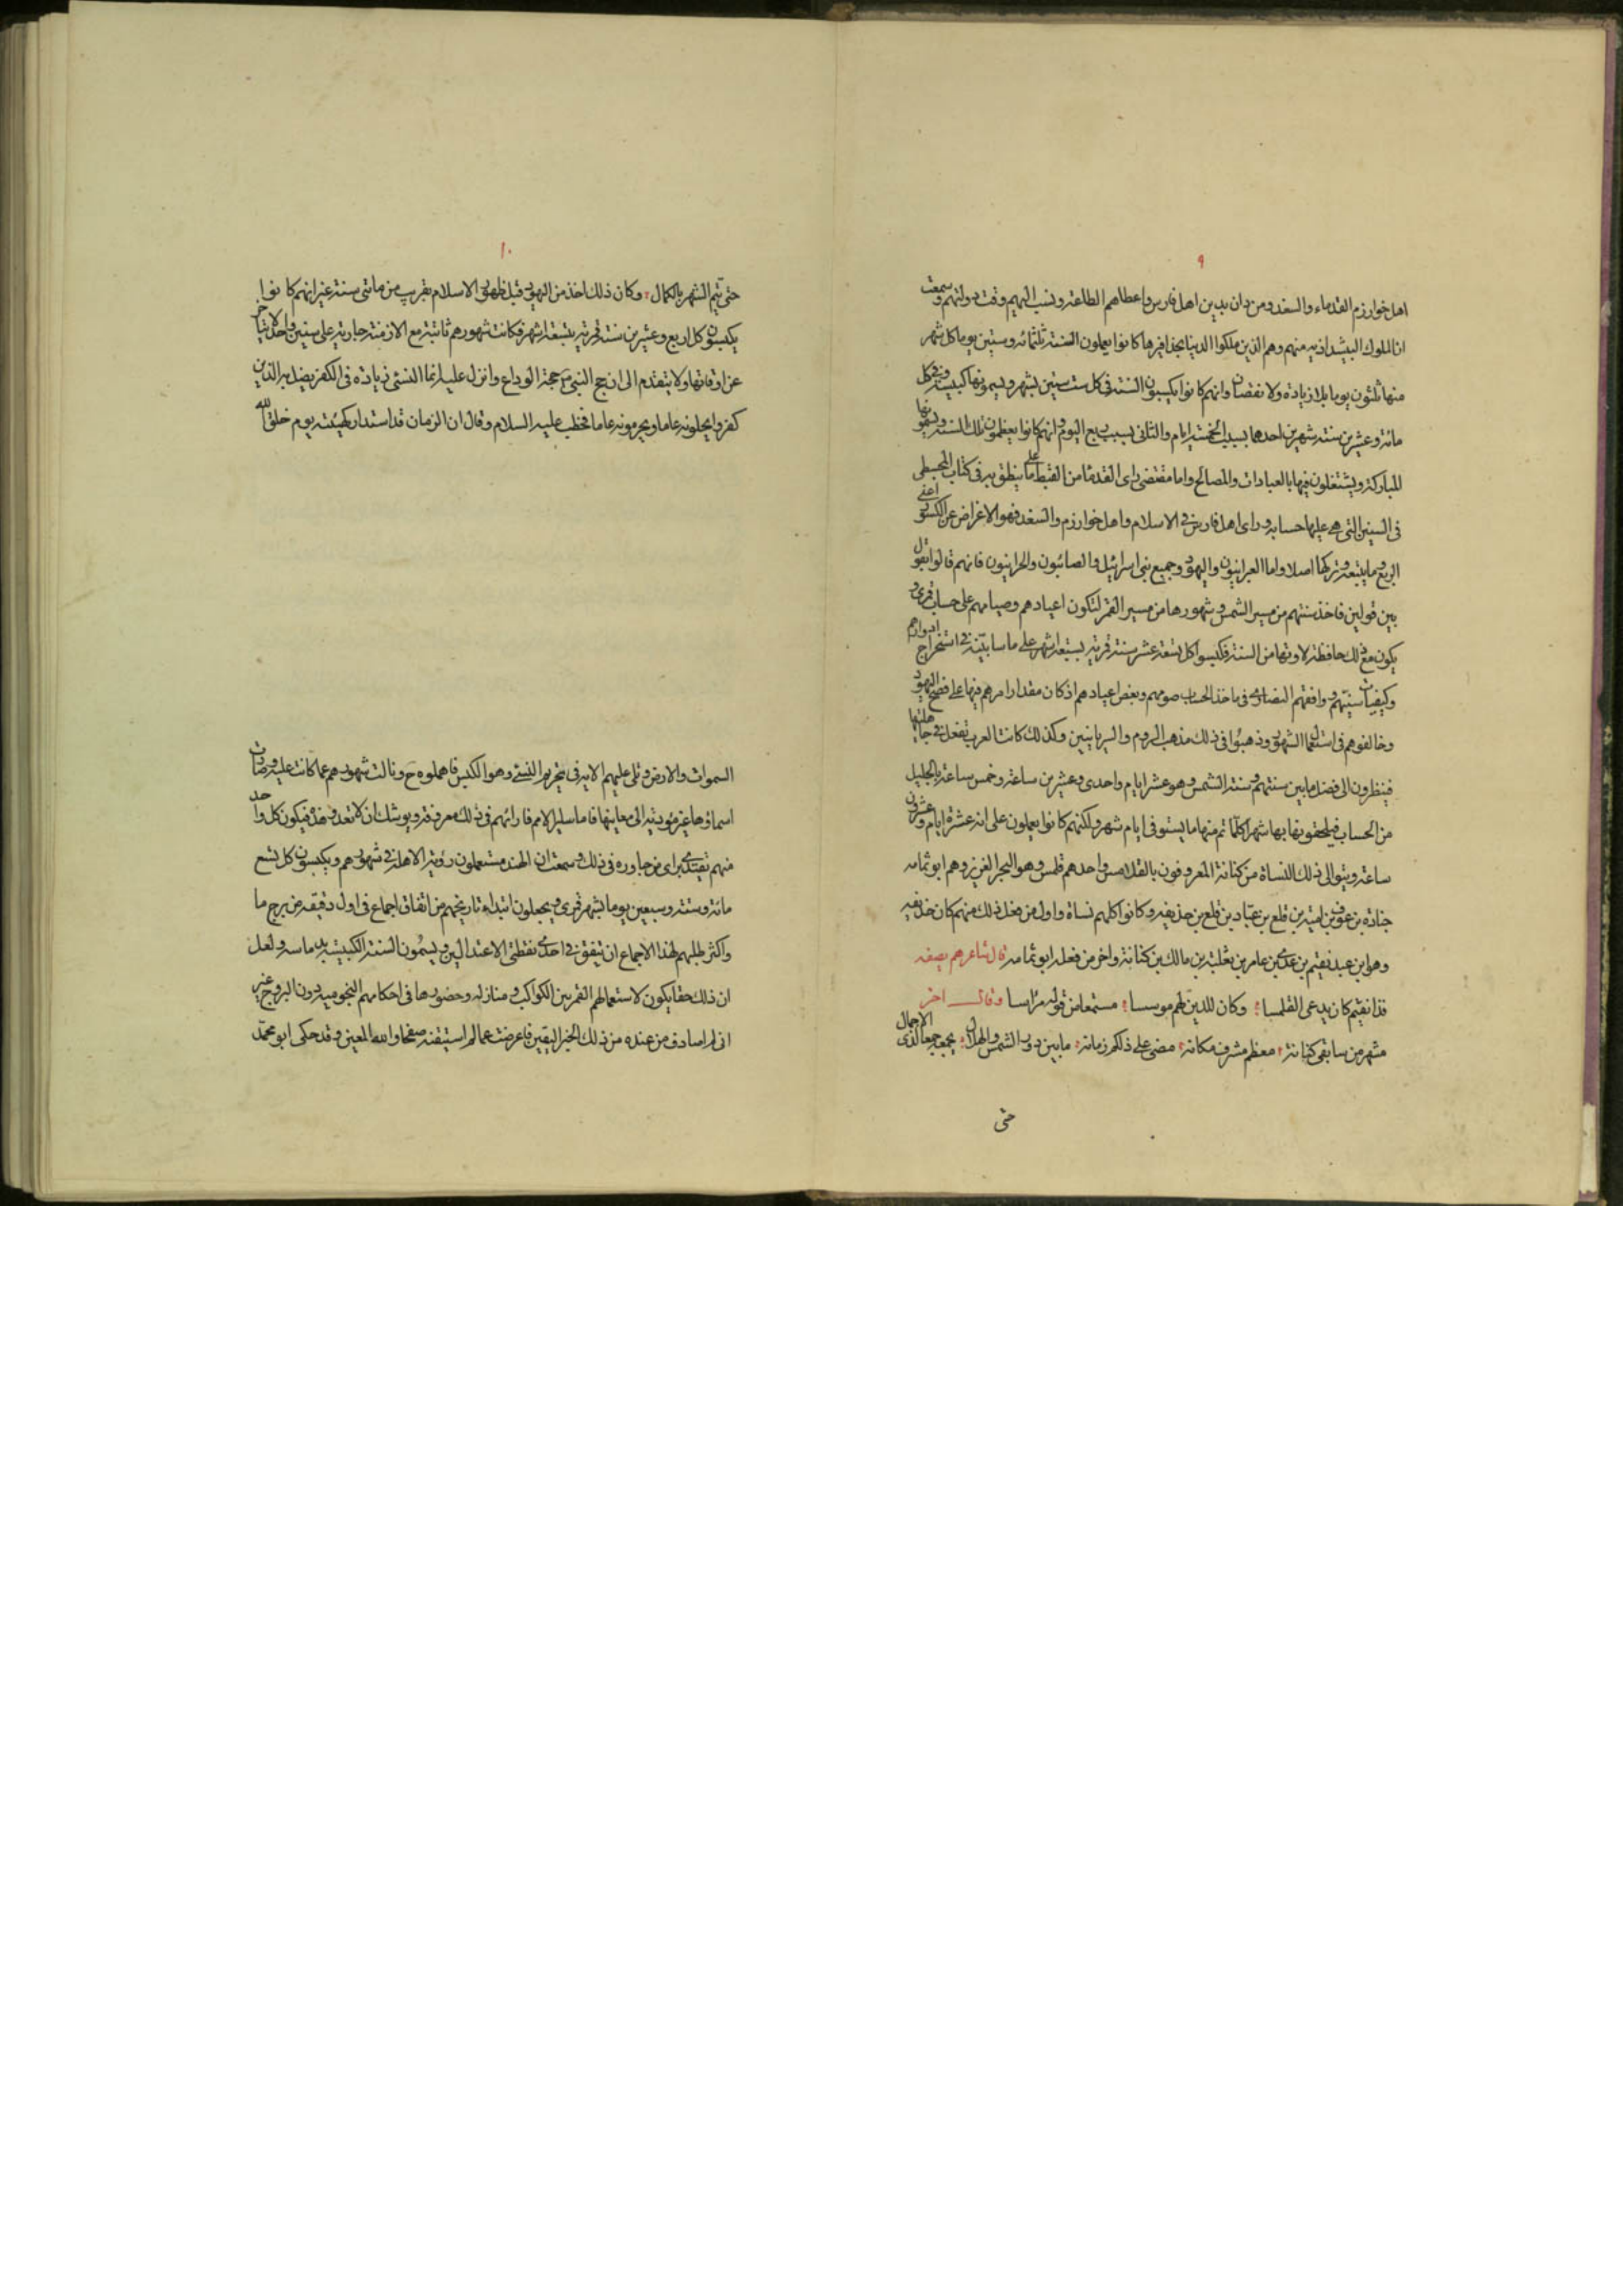 ٩
اهل خوارزم القدماء والسغد ومن دان بدين اهل فارس واعطاهم الطاعة ونسب اليهم وقت دولتهم وسمعت
ان الملوك البيشداذيه منهم وهم الذين ملكوا الدنيا بحذافيرها كانوا يعملون السنة ثلثمائه وستين يوما كل شهر
منها ثلثون يوما بلا زيادة ولا نقصان وانهم كانوا يكبسون السنة فى كل ست سنين بشهر ويسمونها كبيسة وفى كل
مائة وعشرين سنة شهرين احدهما بسبب الخمسة ايام والثانى بسبب ربع اليوم وانهم كانوا يعظمون تلك السنة ويسمونها
المباركة ويشتغلون فيها بالعبادات والمصالح واما مقتضى راى القدما من القبط على ما ينطق به فى كتاب المجسطى
فى السنين التى هى عليها حسابه وراى اهل فارس فى الاسلام واهل خوارزم والسغد فهو الاعراض عن الكسور اعنى
الربع وما يتبعه وتركها اصلا واما العبرانيون واليهود وجميع بنى اسرائيل والصائبون والحرانيون فانهم قالوا بقول
بين قولين فاخذ سنتهم من مسير الشمس وشهورها من مسير القمر لتكون اعيادهم وصيامهم على حساب قمرى و
يكون مع ذلك حافظة لاوقاتها من السنة فكبسوا كل تسعة عشر سنة قمرية بسبعة اشهر على ما سابينه فى استخراج ادوارهم
وكيفيات سنيهم ووافقهم النصارى فى ماخذ الحساب صومهم وبعض اعيادهم اذ كان مقدار امرهم فيها على فصح اليهود
وخالفوهم فى استعمال الشهور وذهبوا فى ذلك مذهب الروم والسريانيين وكذلك كانت العرب تفعل فى جاهليتها
فينظرون الى فضل ما بين سنتهم وسنة الشمس وهو عشر ايام واحدى وعشرين ساعة وخمس ساعة بالجليل
من الحساب فيلحقونها بها شهرا كلما تم منها ما يستوفى ايام شهر ولكنهم كانوا يعملون على انه عشرة ايام وعشرون
ساعة ويتوالى ذلك النساة من كنانة المعروفون بالقلامس واحدهم قلمس وهو البحر الغزير وهم ابو ثمامه
جنادة بن عوف بن امية بن قلع بن عباد بن قلع بن حذيفه وكانوا كلهم نساة واول من فعل ذلك منهم كان حذيفه
وهو ابن عبد فقيم بن عدى بن عامر بن ثعلبة بن مالك بن كنانة واخر من فعله ابو ثمامه قال شاعرهم يصفه
فذا فقيم كان يدعى القلمسا وكان للدين لهم موسسا مستمعا من قوله مراسا وقال اخر
مشهر من سابقى كنانة معظم مشرف مكانه مضى على ذلكم زمانه ما بين دور الشمس والهلال يجمعه جمعا لذى الاجمال
حتى
١٠
حتى يتم الشهر بالكمال وكان ذلك اخذ من اليهود قبل ظهور الاسلام بقريب من مائتى سنة غير انهم كانوا
يكبسون كل اربع وعشرين سنة قمرية بتسعة اشهر فكانت شهورهم ثابتة مع الازمنة جارية على سنين واحد لا يتاخر
عن اوقاتها ولا يتقدم الى ان حج النبى حجة الوداع وانزل عليه انما النسئ زيادة فى الكفر يضل به الذين
كفروا يحلونه عاما ويحرمونه عاما فخطب عليه السلام وقال ان الزمان قد استدار كهيئته يوم خلق الله
السموات والارض وتلى عليهم الاية فى تحريم النسئ وهو الكبس فاهملوه ح وزالت شهورهم عما كانت عليه وصارت
اسماؤها غير مؤدية الى معانيها فاما سائر الامم فارائهم فى ذلك معروفة ويوشك ان لا تعدو هذه فيكون كل واحد
منهم يقتدى براى من جاوره فى ذلك وسمعت ان الهند مستعملون رؤية الاهلة فى شهورهم ويكبسون كل تسع
مائة وستة وسبعين يوما بشهر قمرى ويجعلون ابتداء تاريخهم من اتفاق اجماع فى اول دقيقة من برج ما
واكثر طلبهم لهذا الاجماع ان يتفق فى احدى نقطتى الاعتدالين ويسمون السنة الكبيسة بدماسه ولعل
ان ذلك حقا يكون لاستعمالهم القمر بين الكواكب ومنازله وحضورها فى احكامهم النجوميه دون البروج غير
انى لم اصادف من عنده من ذلك الخبر اليقين فاعرضت عما لم استيقنه صفحا والله المعين وقد حكى ابو محمد